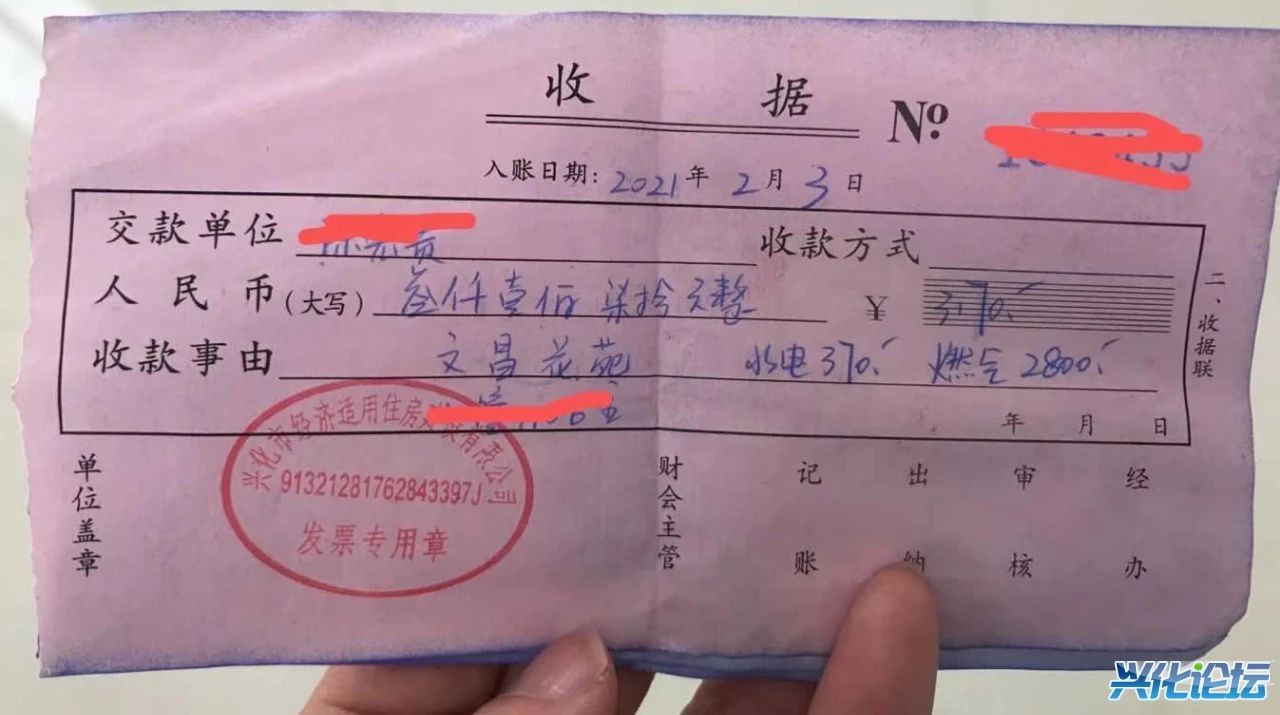 收 据 №
入账日期: 2021 年 2 月 3 日
交款单位 收款方式
人民币(大写) 叁仟壹佰柒拾元整 ¥ 3170.
收款事由 文昌花苑 水电370. 燃气2800.
室
年 月 日
二、收据联
单位盖章 财会主管 记账 出纳 审核 经办
兴化市经济适用住房发展有限公司
91321281762843397J
发票专用章
兴化论坛